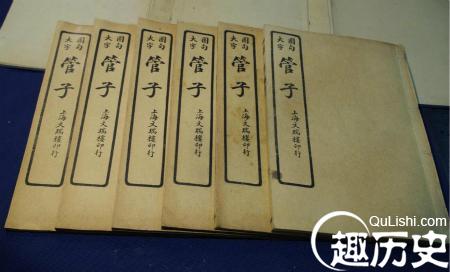 圈句
大字
管子
上海文瑞樓印行
圈句
大字
管子
上海文瑞樓印行
圈句
大字
管子
上海文瑞樓印行
圈句
大字
管子
上海文瑞樓印行
圈句
大字
管子
上海文瑞樓印行
圈句
大字
管子
上海文瑞樓印行
QuLishi.com
趣历史